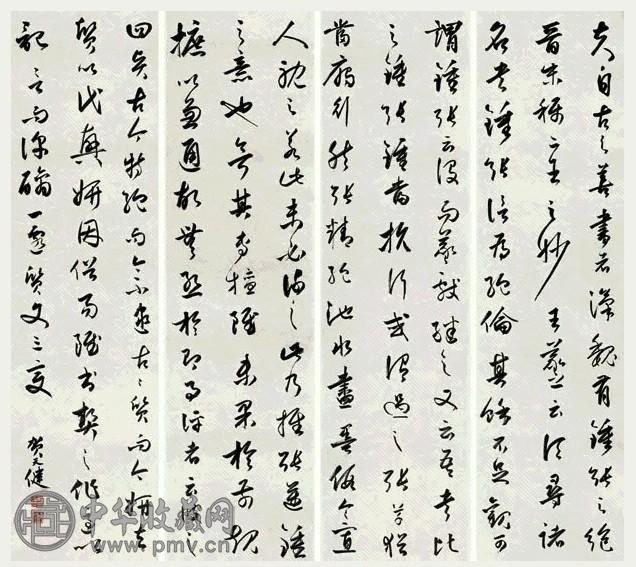 夫自古之善書者漢魏有鍾張之絕
晉末稱二王之妙王羲之云頃尋諸
名書鍾張信為絕倫其餘不足觀可
謂鍾張云沒而羲獻繼之又云吾書比
之鍾張鍾當抗行或謂過之張草猶
當雁行然張精熟池水盡墨假令寡
人耽之若此未必謝之此乃推張邁鍾
之意也考其專擅雖未果於前規
摭以兼通故無慚於即事評者云彼之
四賢古今特絕而今不逮古古質而今妍夫
質以代興妍因俗易雖書契之作適以
記言而淳醨一遷質文三變
賀天健
中华收藏网
www.pmv.cn